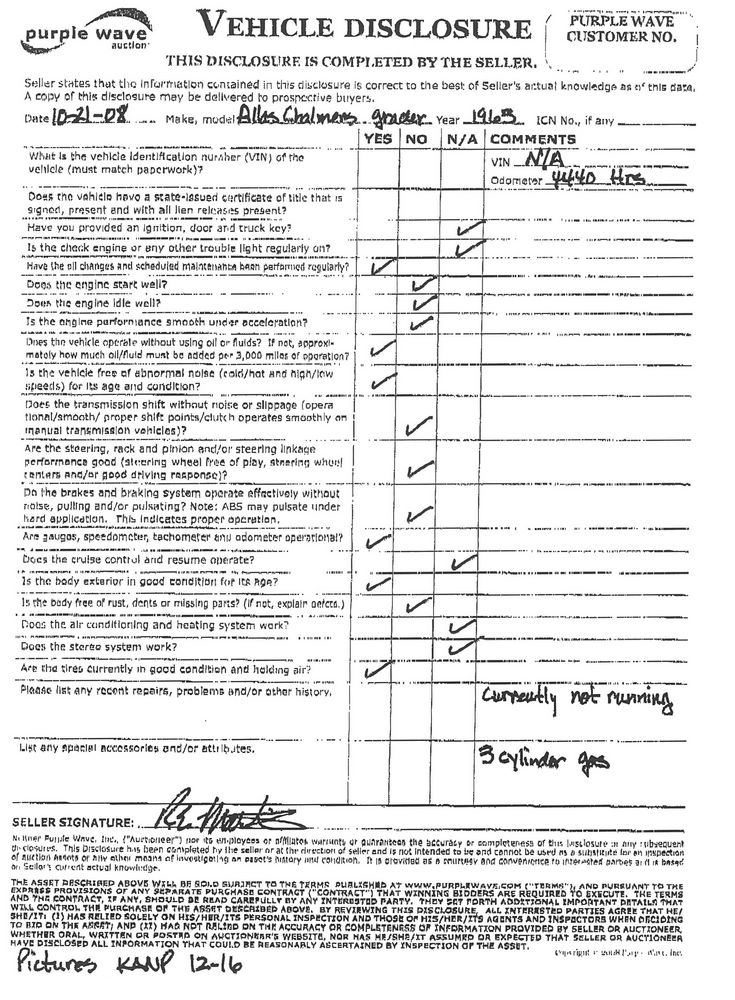 purple wave
auction
VEHICLE DISCLOSURE
PURPLE WAVE
CUSTOMER NO.
THIS DISCLOSURE IS COMPLETED BY THE SELLER.
Seller states that the information contained in this disclosure is correct to the best of Seller's actual knowledge as of this date.
A copy of this disclosure may be delivered to prospective buyers.
Date 10-21-08 Make, model Allas Chalmers grader Year 1963 ICN No., if any
YES NO N/A COMMENTS
What is the vehicle identification number (VIN) of the
vehicle (must match paperwork)?
VIN N/A
Odometer 4440 Hrs
Does the vehicle have a state-issued certificate of title that is
signed, present and with all lien releases present?
Have you provided an ignition, door and truck key? ✓
Is the check engine or any other trouble light regularly on? ✓
Have the oil changes and scheduled maintenance been performed regularly? ✓
Does the engine start well? ✓
Does the engine idle well? ✓
Is the engine performance smooth under acceleration? ✓
Does the vehicle operate without using oil or fluids? If not, approxi-
mately how much oil/fluid must be added per 3,000 miles of operation? ✓
Is the vehicle free of abnormal noise (cold/hot and high/low
speeds) for its age and condition? ✓
Does the transmission shift without noise or slippage (opera
tional/smooth/ proper shift points/clutch operates smoothly on
manual transmission vehicles)? ✓
Are the steering, rack and pinion and/or steering linkage
performance good (steering wheel free of play, steering wheel
centers and/or good driving response)? ✓
Do the brakes and braking system operate effectively without
noise, pulling and/or pulsating? Note: ABS may pulsate under
hard application. This indicates proper operation. ✓
Are gauges, speedometer, tachometer and odometer operational? ✓
Does the cruise control and resume operate? ✓
Is the body exterior in good condition for its age? ✓
Is the body free of rust, dents or missing parts? (if not, explain defects.) ✓
Does the air conditioning and heating system work? ✓
Does the stereo system work? ✓
Are the tires currently in good condition and holding air? ✓
Please list any recent repairs, problems and/or other history.
Currently not running
List any special accessories and/or attributes.
3 cylinder gas
SELLER SIGNATURE:
Neither Purple Wave, Inc., ("Auctioneer") nor its employees or affiliates warrants or guarantees the accuracy or completeness of this disclosure or any subsequent
disclosures. This Disclosure has been completed by the seller or at the direction of seller and is not intended to be and cannot be used as a substitute for an inspection
of auction assets or any other means of investigating an asset's history and condition. It is provided as a courtesy and convenience to interested parties and is based
on Seller's current actual knowledge.
THE ASSET DESCRIBED ABOVE WILL BE SOLD SUBJECT TO THE TERMS PUBLISHED AT WWW.PURPLEWAVE.COM ("TERMS"), AND PURSUANT TO THE
EXPRESS PROVISIONS OF ANY SEPARATE PURCHASE CONTRACT ("CONTRACT") THAT WINNING BIDDERS ARE REQUIRED TO EXECUTE. THE TERMS
AND THE CONTRACT, IF ANY, SHOULD BE READ CAREFULLY BY ANY INTERESTED PARTY. THEY SET FORTH ADDITIONAL IMPORTANT DETAILS THAT
WILL CONTROL THE PURCHASE OF THE ASSET DESCRIBED ABOVE. BY REVIEWING THIS DISCLOSURE, ALL INTERESTED PARTIES AGREE THAT HE/
SHE/IT: (I) HAS RELIED SOLELY ON HIS/HER/ITS PERSONAL INSPECTION AND THOSE OF HIS/HER/ITS AGENTS AND INSPECTORS WHEN DECIDING
TO BID ON THE ASSET; AND (II) HAS NOT RELIED ON THE ACCURACY OR COMPLETENESS OF INFORMATION PROVIDED BY SELLER OR AUCTIONEER,
WHETHER ORAL, WRITTEN OR POSTED ON AUCTIONEER'S WEBSITE, NOR HAS HE/SHE/IT ASSUMED OR EXPECTED THAT SELLER OR AUCTIONEER
HAVE DISCLOSED ALL INFORMATION THAT COULD BE REASONABLY ASCERTAINED BY INSPECTION OF THE ASSET.
Copyright © 2008 Purple Wave, Inc.
Pictures KANP 12-16